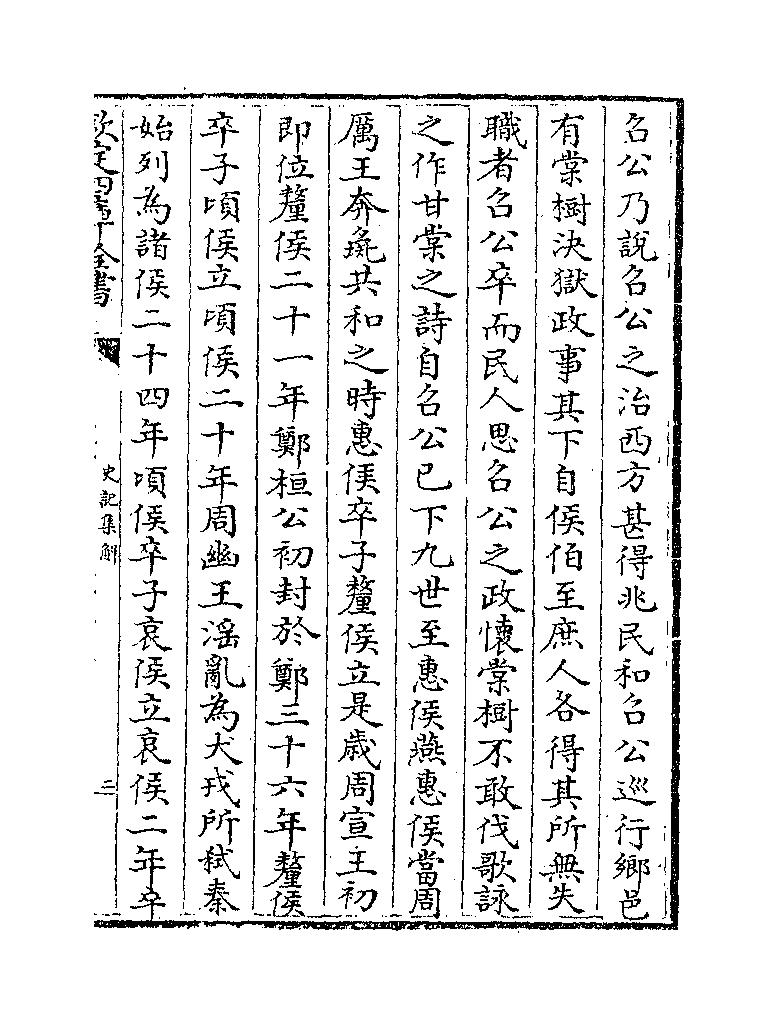 召公乃說召公之治西方甚得兆民和召公巡行鄉邑
有棠樹決獄政事其下自侯伯至庶人各得其所無失
職者召公卒而民人思召公之政懷棠樹不敢伐歌詠
之作甘棠之詩自召公已下九世至惠侯燕惠侯當周
厲王奔彘共和之時惠侯卒子釐侯立是歲周宣王初
即位釐侯二十一年鄭桓公初封於鄭三十六年釐侯
卒子頃侯立頃侯二十年周幽王淫亂為犬戎所弒秦
始列為諸侯二十四年頃侯卒子哀侯立哀侯二年卒
欽定四庫全書
史記集解
三